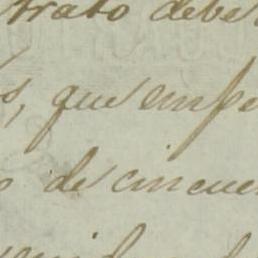 trato debe
s, que empe
o de cincue